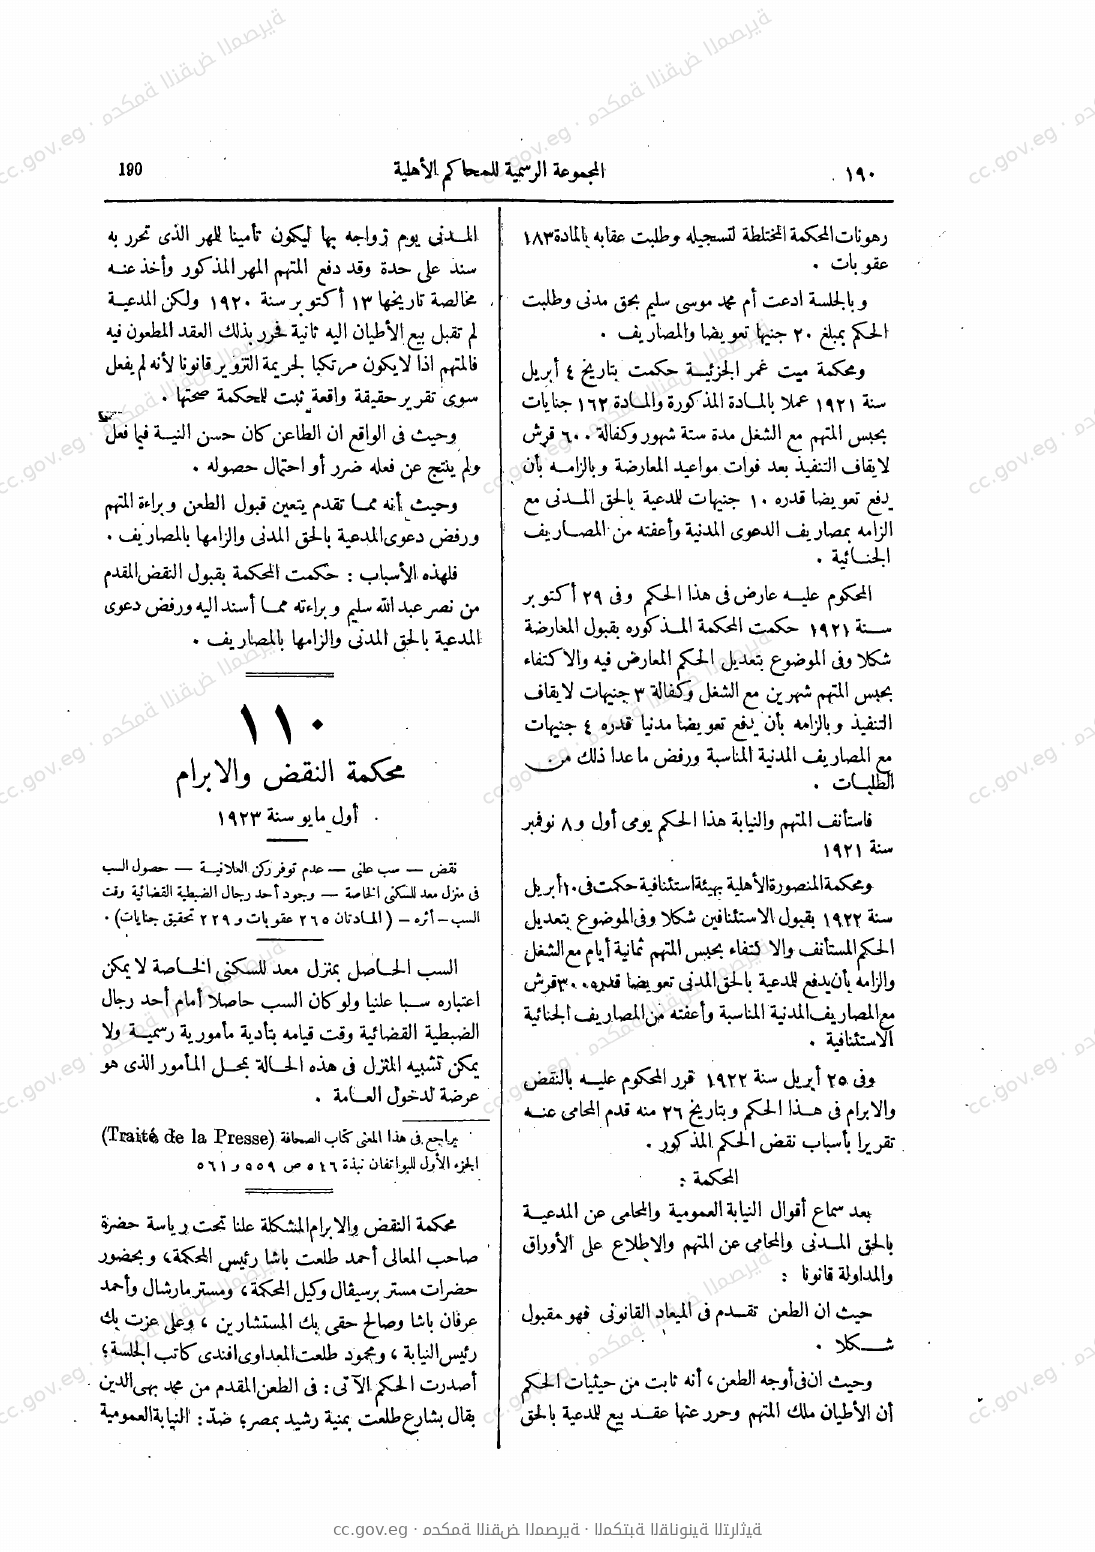 ١٩٠
المجموعة الرسمية للمحاكم الأهلية
190
رهونات المحكمة المختلطة لتسجيله وطلبت عقابه بالمادة ١٨٣
عقوبات .
وبالجلسة ادعت أم محمد موسى سليم بحق مدنى وطلبت
الحكم بمبلغ ٢٠ جنيها تعويضا والمصاريف .
ومحكمة ميت غمر الجزئية حكمت بتاريخ ٤ أبريل
سنة ١٩٢١ عملا بالمادة المذكورة والمادة ١٦٢ جنايات
بحبس المتهم مع الشغل مدة ستة شهور وكفالة ٦٠٠ قرش
لايقاف التنفيذ بعد فوات مواعيد المعارضة وبالزامه بأن
يدفع تعويضا قدره ١٠ جنيهات للدعية بالحق المدنى مع
الزامه بمصاريف الدعوى المدنية وأعفته من المصاريف
الجنائية .
المحكوم عليه عارض فى هذا الحكم وفى ٢٩ أكتوبر
سنة ١٩٢١ حكمت المحكمة المذكوره بقبول المعارضة
شكلا وفى الموضوع بتعديل الحكم المعارض فيه والاكتفاء
بحبس المتهم شهرين مع الشغل وكفالة ٣ جنيهات لايقاف
التنفيذ وبالزامه بأن يدفع تعويضا مدنيا قدره ٤ جنيهات
مع المصاريف المدنية المناسبة ورفض ماعدا ذلك من
الطلبات .
فاستأنف المتهم والنيابة هذا الحكم يومى أول و ٨ نوفمبر
سنة ١٩٢١
ومحكمة المنصورة الأهلية بهيئة استئنافية حكمت فى ١٠ أبريل
سنة ١٩٢٢ بقبول الاستئنافين شكلا وفى الموضوع بتعديل
الحكم المستأنف والاكتفاء بحبس المتهم ثمانية أيام مع الشغل
والزامه بأن يدفع للدعية بالحق المدنى تعويضا قدره ٣٠٠ قرش
مع المصاريف المدنية المناسبة وأعفته من المصاريف الجنائية
الاستئنافية .
وفى ٢٥ أبريل سنة ١٩٢٢ قرر المحكوم عليه بالنقض
والابرام فى هذا الحكم وبتاريخ ٢٦ منه قدم المحامى عنه
تقريرا بأسباب نقض الحكم المذكور .
المحكمة :
بعد سماع أقوال النيابة العمومية والمحامى عن المدعية
بالحق المدنى والمحامى عن المتهم والاطلاع على الأوراق
والمداولة قانونا :
حيث ان الطعن تقدم فى الميعاد القانونى فهو مقبول
شكلا .
وحيث ان فى أوجه الطعن، أنه ثابت من حيثيات الحكم
أن الأطيان ملك المتهم وحرر عنها عقد بيع للدعية بالحق
المدنى يوم زواجه بها ليكون تأمينا للهر الذى تحرر به
سند على حدة وقد دفع المتهم المهر المذكور وأخذ عنه
مخالصة تاريخها ١٣ أكتوبر سنة ١٩٢٠ ولكن المدعية
لم تقبل بيع الأطيان اليه ثانية فحرر بذلك العقد المطعون فيه
فالمتهم اذا لا يكون مرتكبا لجريمة التزوير قانونا لأنه لم يفعل
سوى تقرير حقيقة واقعة ثبت للحكمة صحتها .
وحيث فى الواقع ان الطاعن كان حسن النية فيما فعل
ولم ينتج عن فعله ضرر أو احتمال حصوله .
وحيث أنه مما تقدم يتعين قبول الطعن وبراءة المتهم
ورفض دعوى المدعية بالحق المدنى والزامها بالمصاريف .
فلهذه الأسباب : حكمت المحكمة بقبول النقض المقدم
من نصر عبد الله سليم وبراءته مما أسند اليه ورفض دعوى
المدعية بالحق المدنى والزامها بالمصاريف .
١١٠
محكمة النقض والابرام
أول مايو سنة ١٩٢٣
نقض — سب علنى — عدم توفر ركن العلانية — حصول السب
فى منزل معد للسكنى الخاصة — وجود أحد رجال الضبطية القضائية وقت
السب — أثره — (المادتان ٢٦٥ عقوبات و ٢٢٩ تحقيق جنايات) .
السب الحاصل بمنزل معد للسكنى الخاصة لا يمكن
اعتباره سبا علنيا ولو كان السب حاصلا أمام أحد رجال
الضبطية القضائية وقت قيامه بتأدية مأمورية رسمية ولا
يمكن تشبيه المنزل فى هذه الحالة بمحل المأمور الذى هو
عرضة لدخول العامة .
يراجع فى هذا المعنى كتاب الصحافة (Traité de la Presse)
الجزء الأول للبواتفان نبذة ٥٤٦ ص ٥٥٩ و ٥٦١
محكمة النقض والابرام المشكلة علنا تحت رياسة حضرة
صاحب المعالى أحمد طلعت باشا رئيس المحكمة، وبحضور
حضرات مستر برسيڤال وكيل المحكمة، ومستر مارشال وأحمد
عرفان باشا وصالح حقى بك المستشارين ، وعلى عزت بك
رئيس النيابة ، ومحمود طلعت المعداوى افندى كاتب الجلسة؛
أصدرت الحكم الآتى : فى الطعن المقدم من محمد بهى الدين
بقال بشارع طلعت بمنية رشيد بمصر؛ ضدّ : النيابة العمومية
cc.gov.eg · محكمة النقض المصرية · المكتبة القانونية التراثية